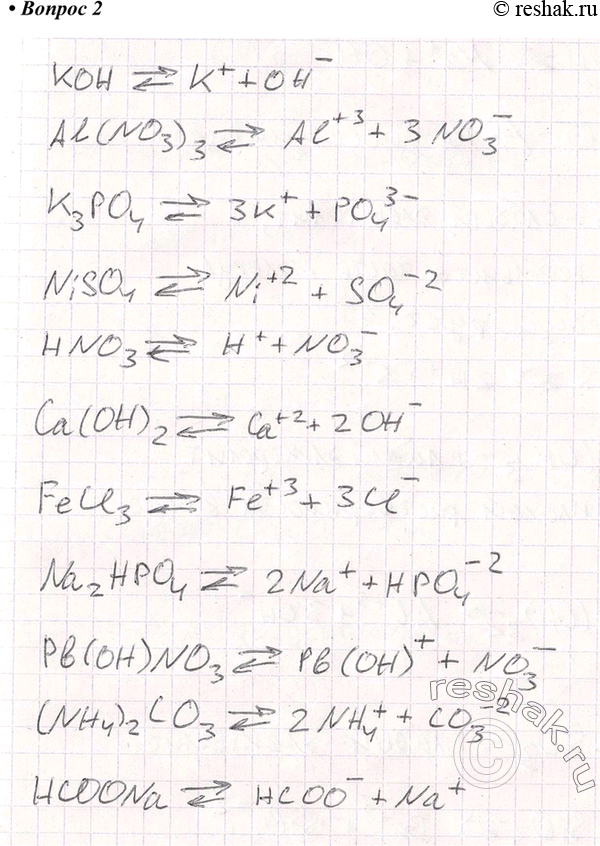 © reshak.ru
• Вопрос 2
KOH ⇌ K⁺ + OH⁻
Al(NO₃)₃ ⇌ Al⁺³ + 3NO₃⁻
K₃PO₄ ⇌ 3K⁺ + PO₄³⁻
NiSO₄ ⇌ Ni⁺² + SO₄⁻²
HNO₃ ⇌ H⁺ + NO₃⁻
Ca(OH)₂ ⇌ Ca⁺² + 2OH⁻
FeCl₃ ⇌ Fe⁺³ + 3Cl⁻
Na₂HPO₄ ⇌ 2Na⁺ + HPO₄⁻²
Pb(OH)NO₃ ⇌ Pb(OH)⁺ + NO₃⁻
(NH₄)₂CO₃ ⇌ 2NH₄⁺ + CO₃⁻²
HCOONa ⇌ HCOO⁻ + Na⁺
reshak.ru
©